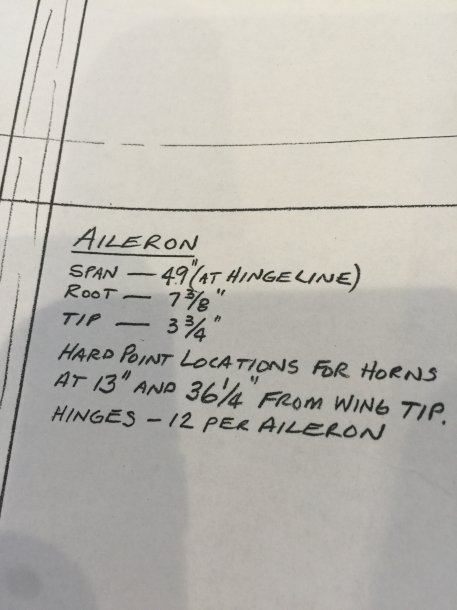 AILERON
SPAN — 49" (AT HINGELINE)
ROOT — 7 3/8"
TIP — 3 3/4"
HARD POINT LOCATIONS FOR HORNS
AT 13" AND 36 1/4" FROM WING TIP.
HINGES - 12 PER AILERON